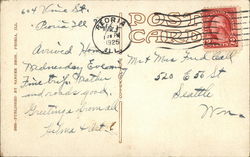 604 Vine St.
Peoria Ill
Arrived Home
Wednesday Evening
Fine trip. Weather
and roads good.
Greetings from all
POST
CARD
PEORIA
1925
ILL.
Mr & Mrs Fred
520 E 50 St
Seattle
Wn.